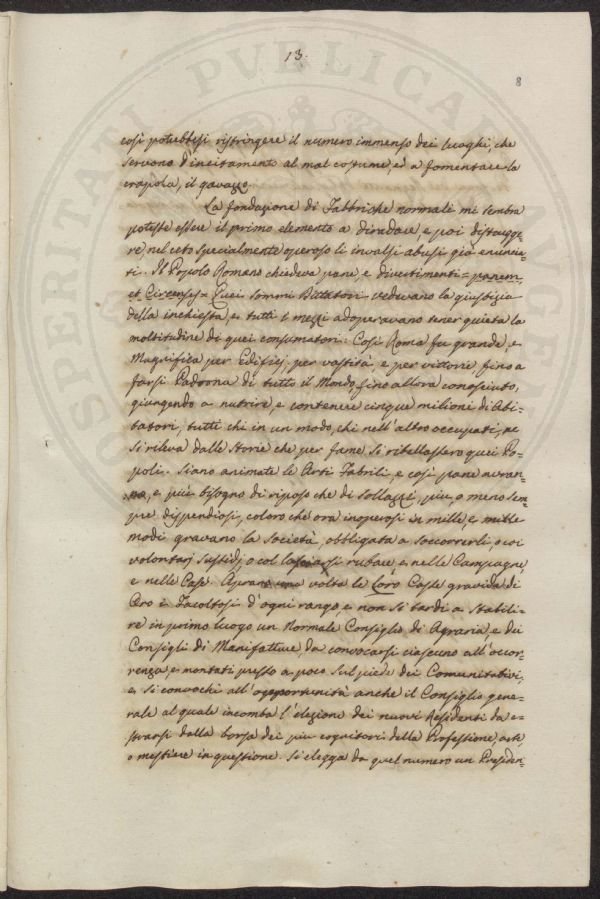 13.
8
così potrebbesi ristringere il numero immenso dei luoghi, che
servono d'incitamento al mal costume, ed a fomentare la
crapola, il gavazzo.
La fondazione di Fabbriche normali mi sembra
potesse essere il primo elemento a diradare, e poi distrugge=
re, nel ceto specialmente operoso li invalsi abusi già enuncia
ti. Il Popolo Romano chiedeva pane, e divertimenti = panem,
et Circenses = Quei sommi Dittatori vedevano la giustizia
della inchiesta, e tutti i mezzi adoperavano tener quieta la
moltitudine di quei consumatori: Così Roma fu grande, e
Magnifica per Edifizj per vastità, e per vittorie fino a
farsi Padrona di tutto il Mondo, fino allora conosciuto,
giungendo a nutrire, e contenere cinque milioni di Abi=
tatori, tutti chi in un modo, chi nell'altro occupati, ne
si rileva dalle Storie che per fame si ribellassero quei Po=
poli. Siano animate le Arti Fabrili, e così pane avran=
no, e più bisogno di riposo che di sollazzi, più, o meno sem=
pre dispendiosi, coloro che ora inoperosi in mille, e mille
modi gravano la società, obbligata a soccorrerli, o coi
volontarj sussidj, o col lasciarsi rubare, e nelle Campagne,
e nelle Case. Aprano una volta le Loro Casse gravide di
Oro i Facoltosi d'ogni rango, e non si tardi a stabili=
re in primo luogo un Normale Consiglio di Agraria, e dei
Consigli di Manifatture, da convocarsi ciascuno all'occor=
renza, e montati presso a poco sul piede dei Comunitativi,
e si convochi all'opportunità anche il Consiglio gene=
rale al quale incomba l'elezione dei nuovi Residenti da e=
strarsi dalla borsa dei più cognitori della Professione, arte,
o mestiere in questione. Si elegga da quel numero un Presiden=